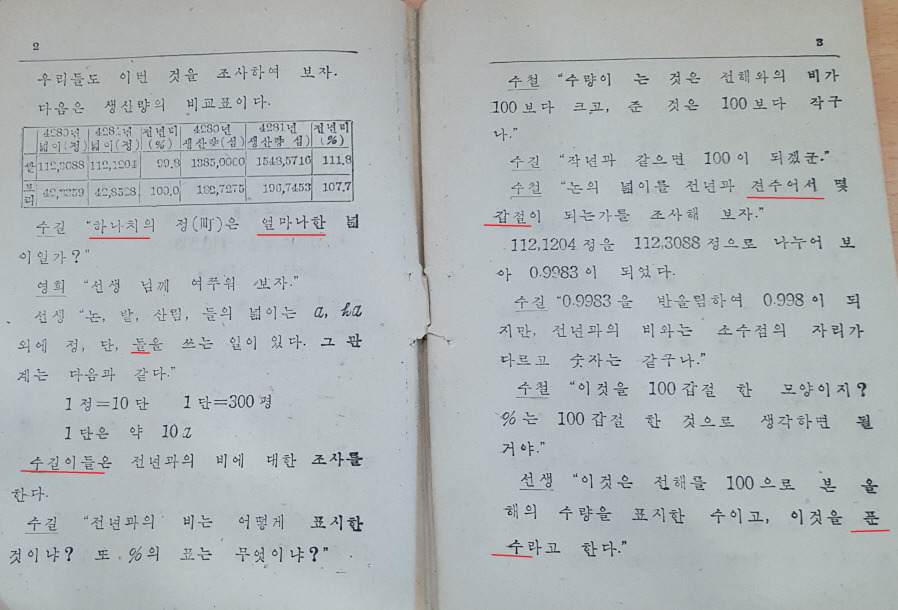 2
우리들도 이런 것을 조사하여 보자.
다음은 생산량의 비교표이다.
4280년 넓이(정) 4281년 넓이(정) 전년비 (%) 4280년 생산량(섬) 4281년 생산량(섬) 전년비 (%)
쌀 112,3088 112,1204 99,8 1385,0000 1548,5716 111,8
보리 100,0 182,7275 196,7453 107,7
수길 “하나치의 정(町)은 얼마나한 넓
이일가?”
영희 “선생 님께 여쭈워 보자.”
선생 “논, 밭, 산림, 들의 넓이는 a, ha
외에 정, 단, 들을 쓰는 일이 있다. 그 관
계는 다음과 같다.”
1 정=10 단 1 단=300 평
1 단은 약 10 a
수길이들은 전년과의 비에 대한 조사를
한다.
수길 “전년과의 비는 어떻게 표시한
것이냐? 또 %의 표는 무엇이냐?”
3
수철 “수량이 는 것은 전해와의 비가
100 보다 크고, 준 것은 100 보다 작구
나.”
수길 “작년과 같으면 100 이 되겠군.”
수철 “논의 넓이를 전년과 견주어서 몇
갑절이 되는가를 조사해 보자.”
112,1204 정을 112,3088 정으로 나누어 보
아 0.9983 이 되었다.
수길 “0.9983 을 반올림하여 0.998 이 되
지만, 전년과의 비와는 소수점의 자리가
다르고 숫자는 같구나.”
수철 “이것을 100 갑절 한 모양이지?
%는 100 갑절 한 것으로 생각하면 될
거야.”
선생 “이것은 전해를 100 으로 본 올
해의 수량을 표시한 수이고, 이것을 푼
수라고 한다.”